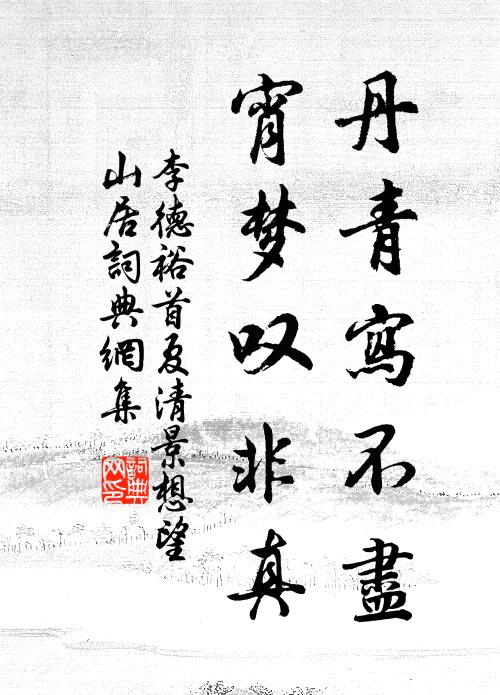 丹青寫不盡
宵梦叹非真
李德裕首夏清景想望
山居詞典網集
詞典
网印